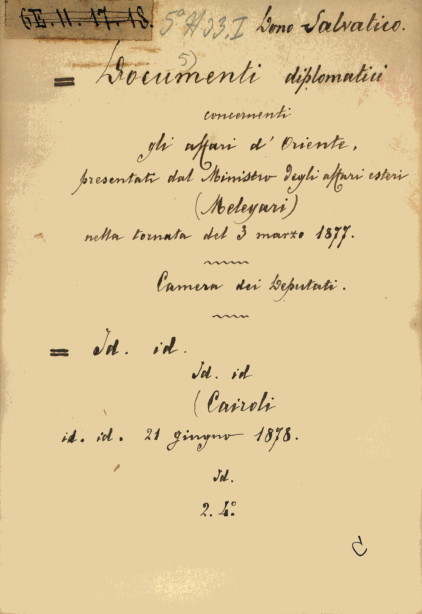 6E. H. 17. 18. 5° H 33. I Dono Salvatico.
5)
= Documenti diplomatici
concernenti
gli affari d' Oriente,
presentati dal Ministro degli affari esteri
(Melegari)
nella tornata del 3 marzo 1877.
Camera dei Deputati.
= Id. id.
Id. id
(Cairoli
id. id. 21 giugno 1878.
Id.
2. 4°.
C